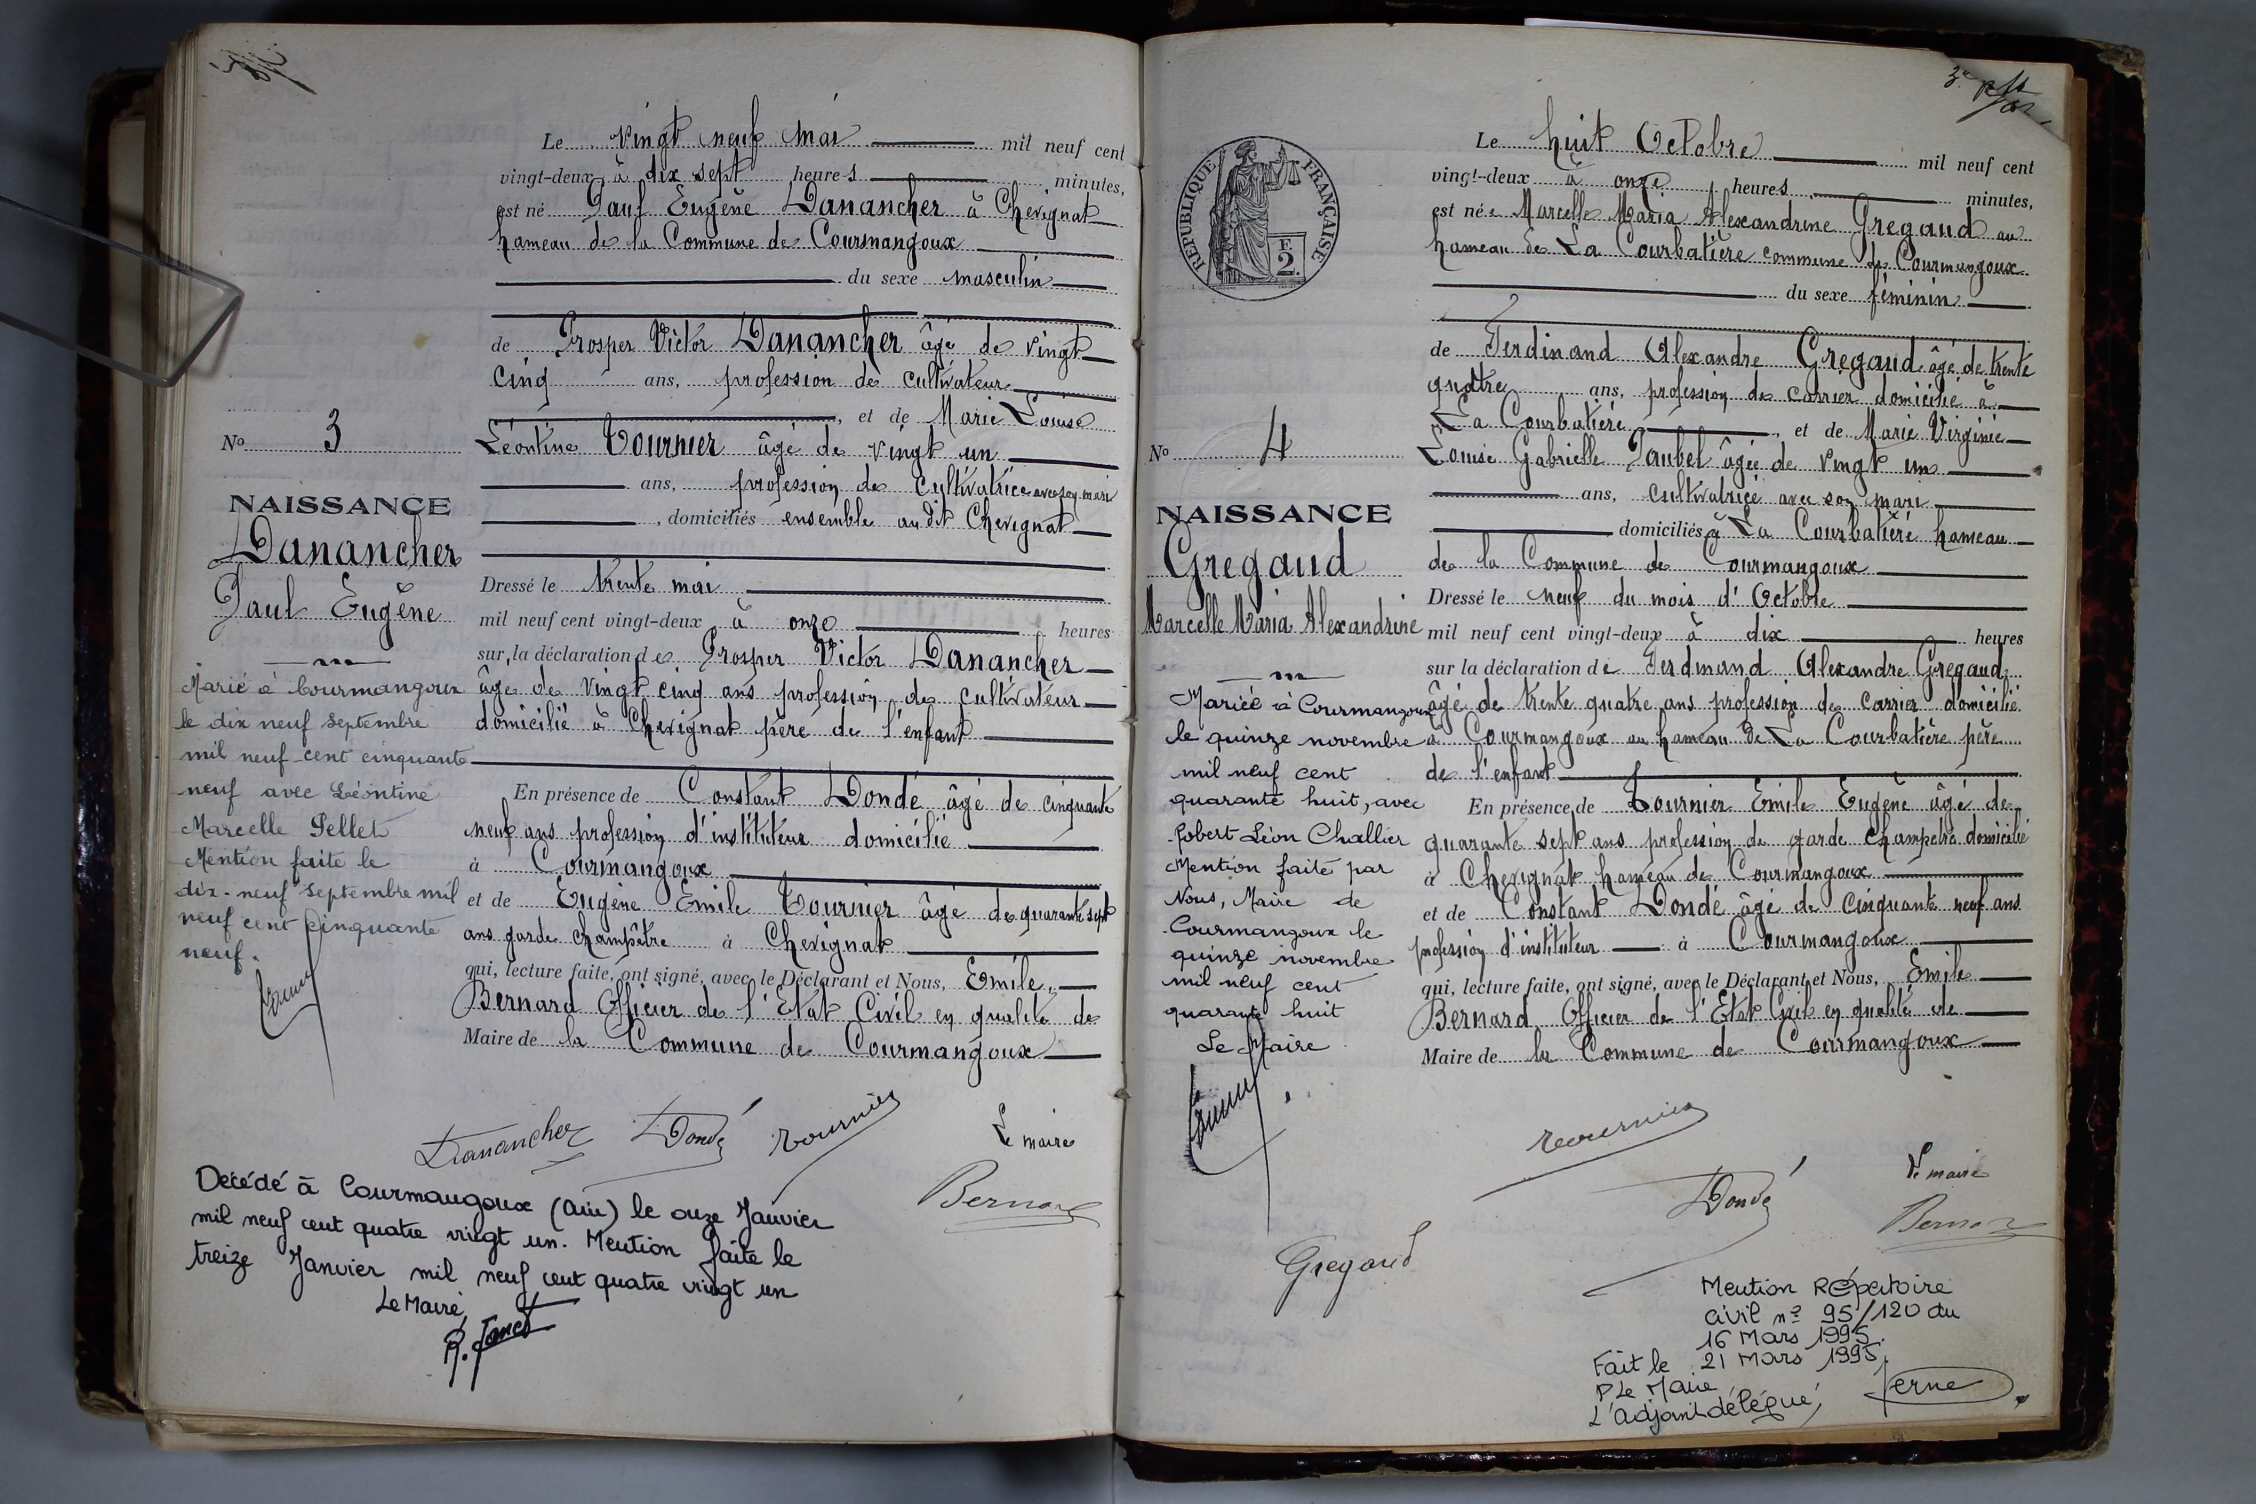 Le vingt neuf mai mil neuf cent
vingt-deux à dix sept heures minutes,
est né Paul Eugène Danancher à Chevignat
hameau de la Commune de Courmangoux
du sexe masculin
de Prosper Victor Danancher âgé de vingt
cinq ans, profession de cultivateur
, et de Marie Louise
Léontine Tournier âgé de vingt un
ans, profession de cultivatrice avec son mari
, domiciliés ensemble au dit Chevignat
Dressé le trente mai
mil neuf cent vingt-deux à onze heures
sur la déclaration de Prosper Victor Danancher
âgé de vingt cinq ans profession de cultivateur
domicilié à Chevignat père de l'enfant
En présence de Constant Dondé âgé de cinquante
neuf ans profession d'instituteur domicilié
à Courmangoux
et de Eugène Emile Tournier âgé de quarante sept
ans garde champêtre à Chevignat
qui, lecture faite, ont signé, avec le Déclarant et Nous, Emile
Bernard Officier de l'Etat Civil en qualité de
Maire de la Commune de Courmangoux
No 3
NAISSANCE
Danancher
Paul Eugène
Marié à Courmangoux
le dix neuf septembre
mil neuf cent cinquante
neuf avec Léontine
Marcelle Pellet
Mention faite le
dix-neuf septembre mil
neuf cent cinquante
neuf.
Danancher Dondé Tournier Le maire
Bernard
Décédé à Courmangoux (Ain) le onze Janvier
mil neuf cent quatre vingt un. Mention faite le
treize Janvier mil neuf cent quatre vingt un
Le Maire
RÉPUBLIQUE FRANÇAISE
F.
2.
Le huit Octobre mil neuf cent
vingt-deux à onze heures minutes,
est née Marcelle Maria Alexandrine Gregaud au
hameau de La Courbatière commune de Courmangoux
du sexe féminin
de Ferdinand Alexandre Gregaud âgé de trente
quatre ans, profession de carrier domicilié à
La Courbatière, et de Marie Virginie
Louise Gabrielle Paubel âgée de vingt un
ans, cultivatrice avec son mari
domiciliés à La Courbatière hameau
de la Commune de Courmangoux
Dressé le neuf du mois d'Octobre
mil neuf cent vingt-deux à dix heures
sur la déclaration de Ferdinand Alexandre Gregaud
âgé de trente quatre ans profession de carrier domicilié
à Courmangoux au hameau de La Courbatière père
de l'enfant
En présence de Tournier Emile Eugène âgé de
quarante sept ans profession de garde champêtre domicilié
à Chevignat hameau de Courmangoux
et de Constant Dondé âgé de cinquante neuf ans
profession d'instituteur à Courmangoux
qui, lecture faite, ont signé, avec le Déclarant et Nous, Emile
Bernard Officier de l'Etat Civil en qualité de
Maire de la Commune de Courmangoux
No 4
NAISSANCE
Gregaud
Marcelle Maria Alexandrine
Mariée à Courmangoux
le quinze novembre
mil neuf cent
quarante huit, avec
Robert Léon Challier
Mention faite par
Nous, Maire de
Courmangoux le
quinze novembre
mil neuf cent
quarante huit
Le Maire
Tournier
Dondé
Le maire
Bernard
Gregaud
Mention Répertoire
civil n° 95/120 du
16 Mars 1995.
Fait le 21 Mars 1995.
P Le Maire
L'adjoint délégué,